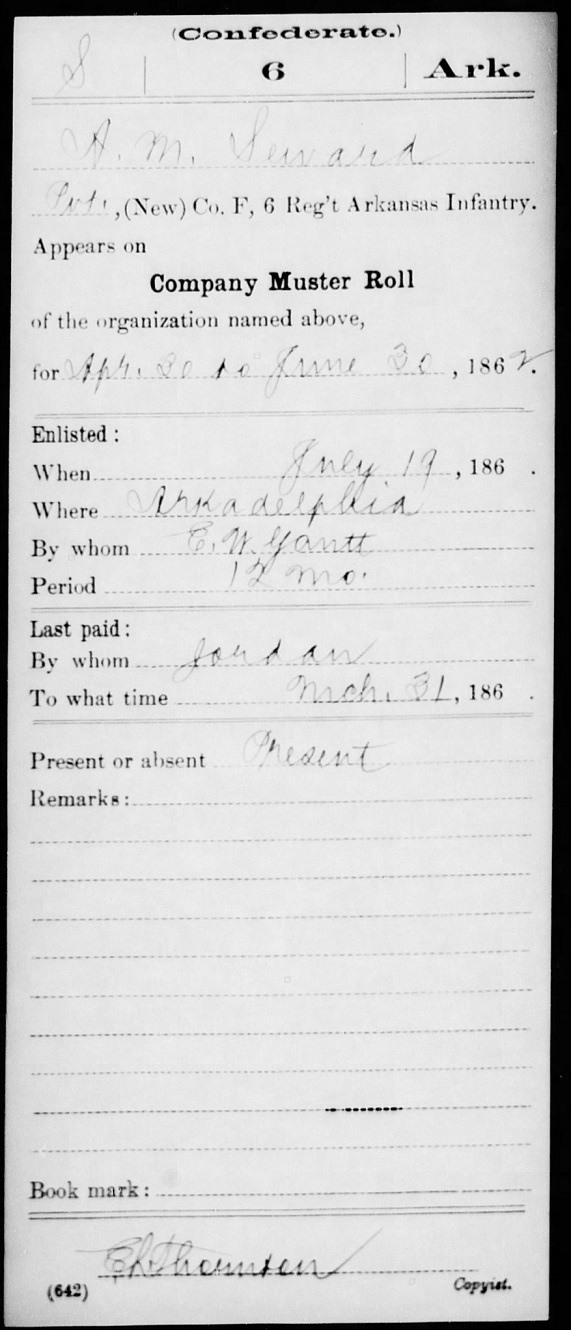 (Confederate.)
S | 6 | Ark.
A. M. Seward
Pvt., (New) Co. F, 6 Reg't Arkansas Infantry.
Appears on
Company Muster Roll
of the organization named above,
for Apr. 30 to June 30, 1862.
Enlisted:
When July 19, 186 .
Where Arkadelphia
By whom E. W. Gantt
Period 12 mo.
Last paid:
By whom Jordan
To what time Mch. 31, 186 .
Present or absent Present
Remarks:
Book mark:
Thornton
(642) Copyist.